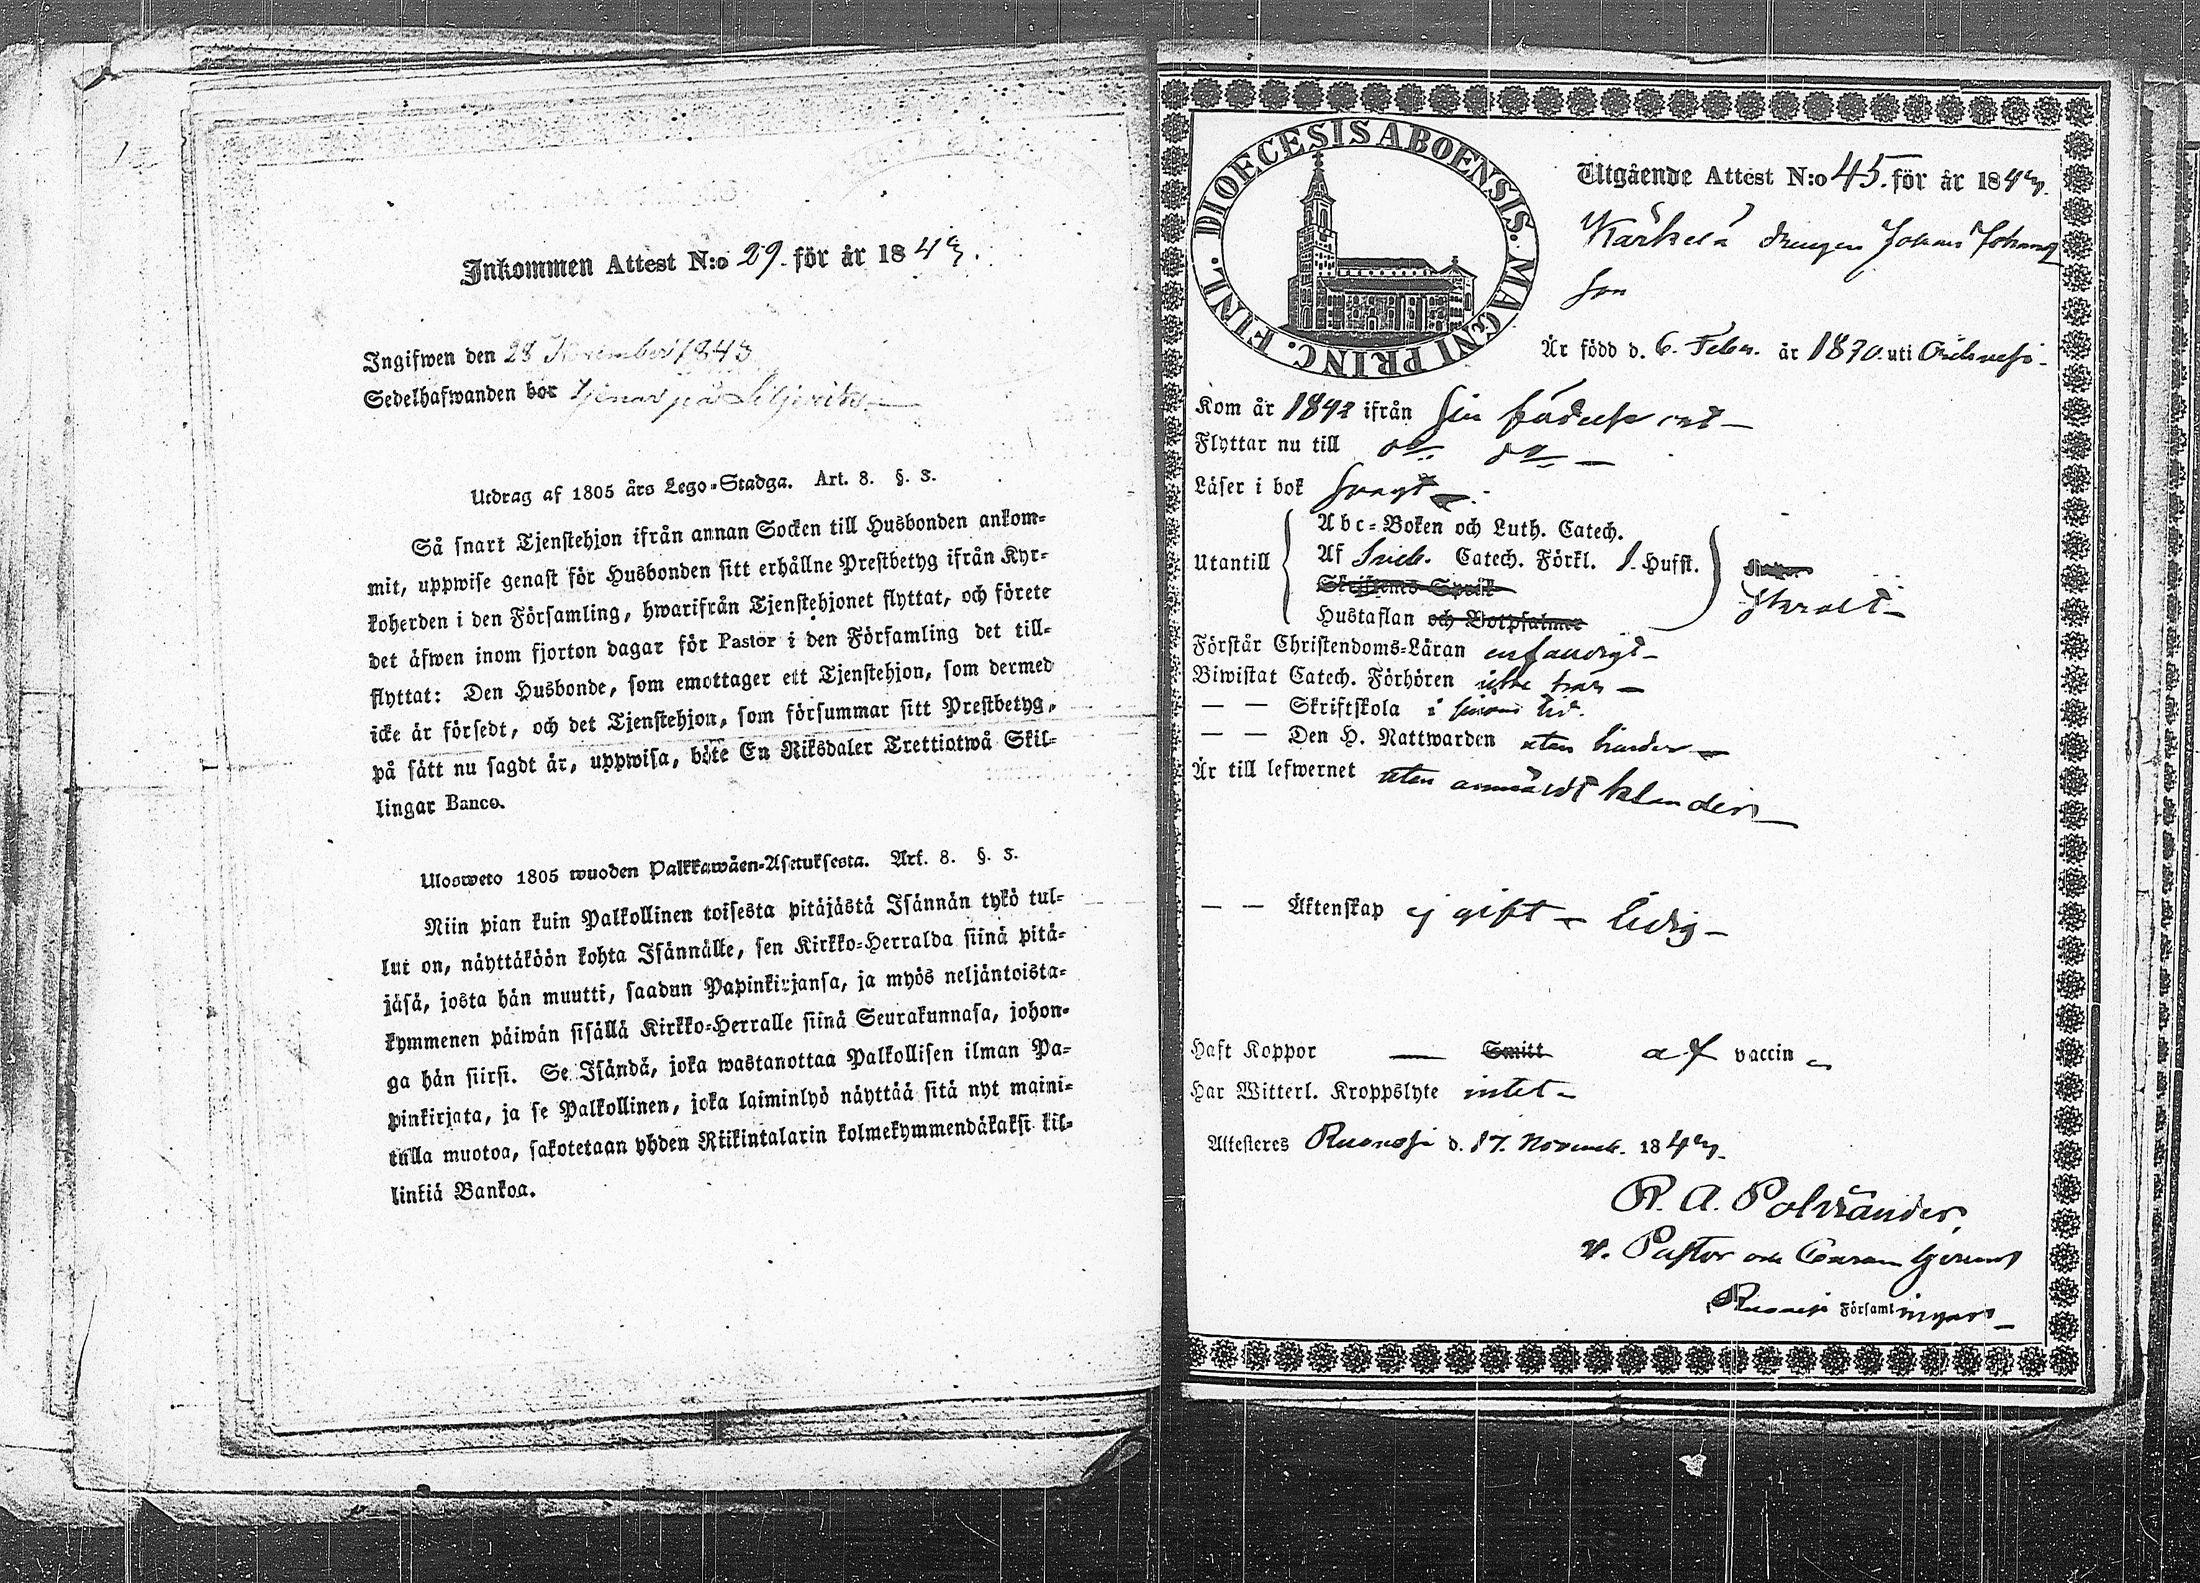 Inkommen Attest N:o 29. för år 1843.
Ingifwen den 28 November 1843
Sedelhafwanden bor tjenar på
Utdrag af 1805 års Lego-Stadga. Art. 8. §. 3.
Så snart Tjenstehjon ifrån annan Socken till Husbonden ankom-
mit, uppwise genast för Husbonden sitt erhållne Prestbetyg ifrån Kyr-
koherden i den Församling, hwarifrån Tjenstehjonet flyttat, och förete
det äfwen inom fjorton dagar för Pastor i den Församling det till-
flyttat: Den Husbonde, som emottager ett Tjenstehjon, som dermed
icke är försedt, och det Tjenstehjon, som försummar sitt Prestbetyg,
på sätt nu sagdt är, uppwisa, böte En Riksdaler Trettiotwå Skil-
lingar Banco.
Ulosweto 1805 wuoden Palkkawäen-Asetuksesta. Art. 8. §. 3.
Niin pian kuin Palkollinen toisesta pitäjästä Isännän tykö tul-
lut on, näyttäköön kohta Isännälle, sen Kirkko-Herralda siinä pitä-
jäsä, josta hän muutti, saadun Papinkirjansa, ja myös neljäntoista-
kymmenen päiwän sisällä Kirkko-Herralle siinä Seurakunnasa, johon-
ga hän siirsi. Se Isändä, joka wastanottaa Palkollisen ilman Pa-
pinkirjata, ja se Palkollinen, joka laiminlyö näyttää sitä nyt maini-
tulla muotoa, sakotetaan yhden Riikintalarin kolmekymmendäkaksi kil-
linkiä Bankoa.
DIOECESIS ABOENSIS. MAGNI PRINC. FINL.
Utgående Attest N:o 45. för år 1843.
Kärkelä drengen Johan Johans
son
Är född d. 6. Febr. år 1820. uti
Kom år 1842 ifrån sin födelse ort
Flyttar nu till do do
Läser i bok svagt
Abc-Boken och Luth. Catech.
Utantill Af Sveb. Catech. Förkl. 1. Hufst.
Skriftenes Språk
Hustaflan och Botpsalmer
Förstår Christendoms-Läran enfaldigt
Biwistat Catech. Förhören
— — Skriftskola i sinom tid.
— — Den H. Nattwarden utan hinder
Är till lefwernet utan anmärkt klander
— — Äktenskap ej gift – ledig
Haft Koppor — Smitt af vaccin
Har Witterl. Kroppslyte intet
Attesteres Rusko d. 17. Novemb. 1843.
R. A. Polviander,
v. Pastor
Församlingar